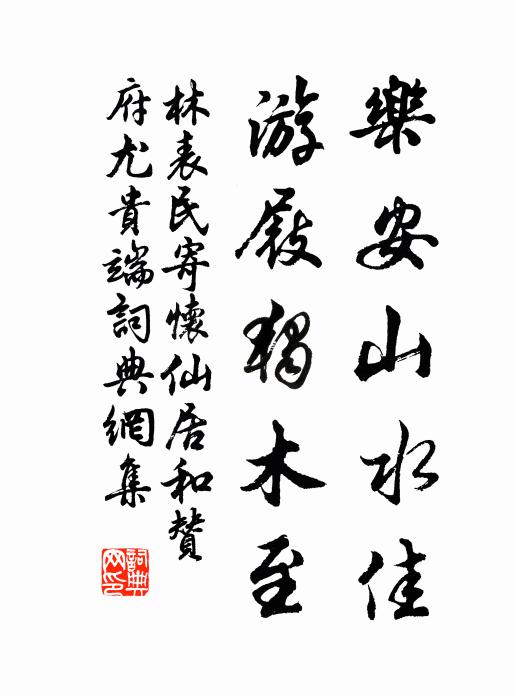 樂安山水佳
游屐獨木至
林表民寄懷仙居和贊
府尤貴端詞典網集
詞典
网印